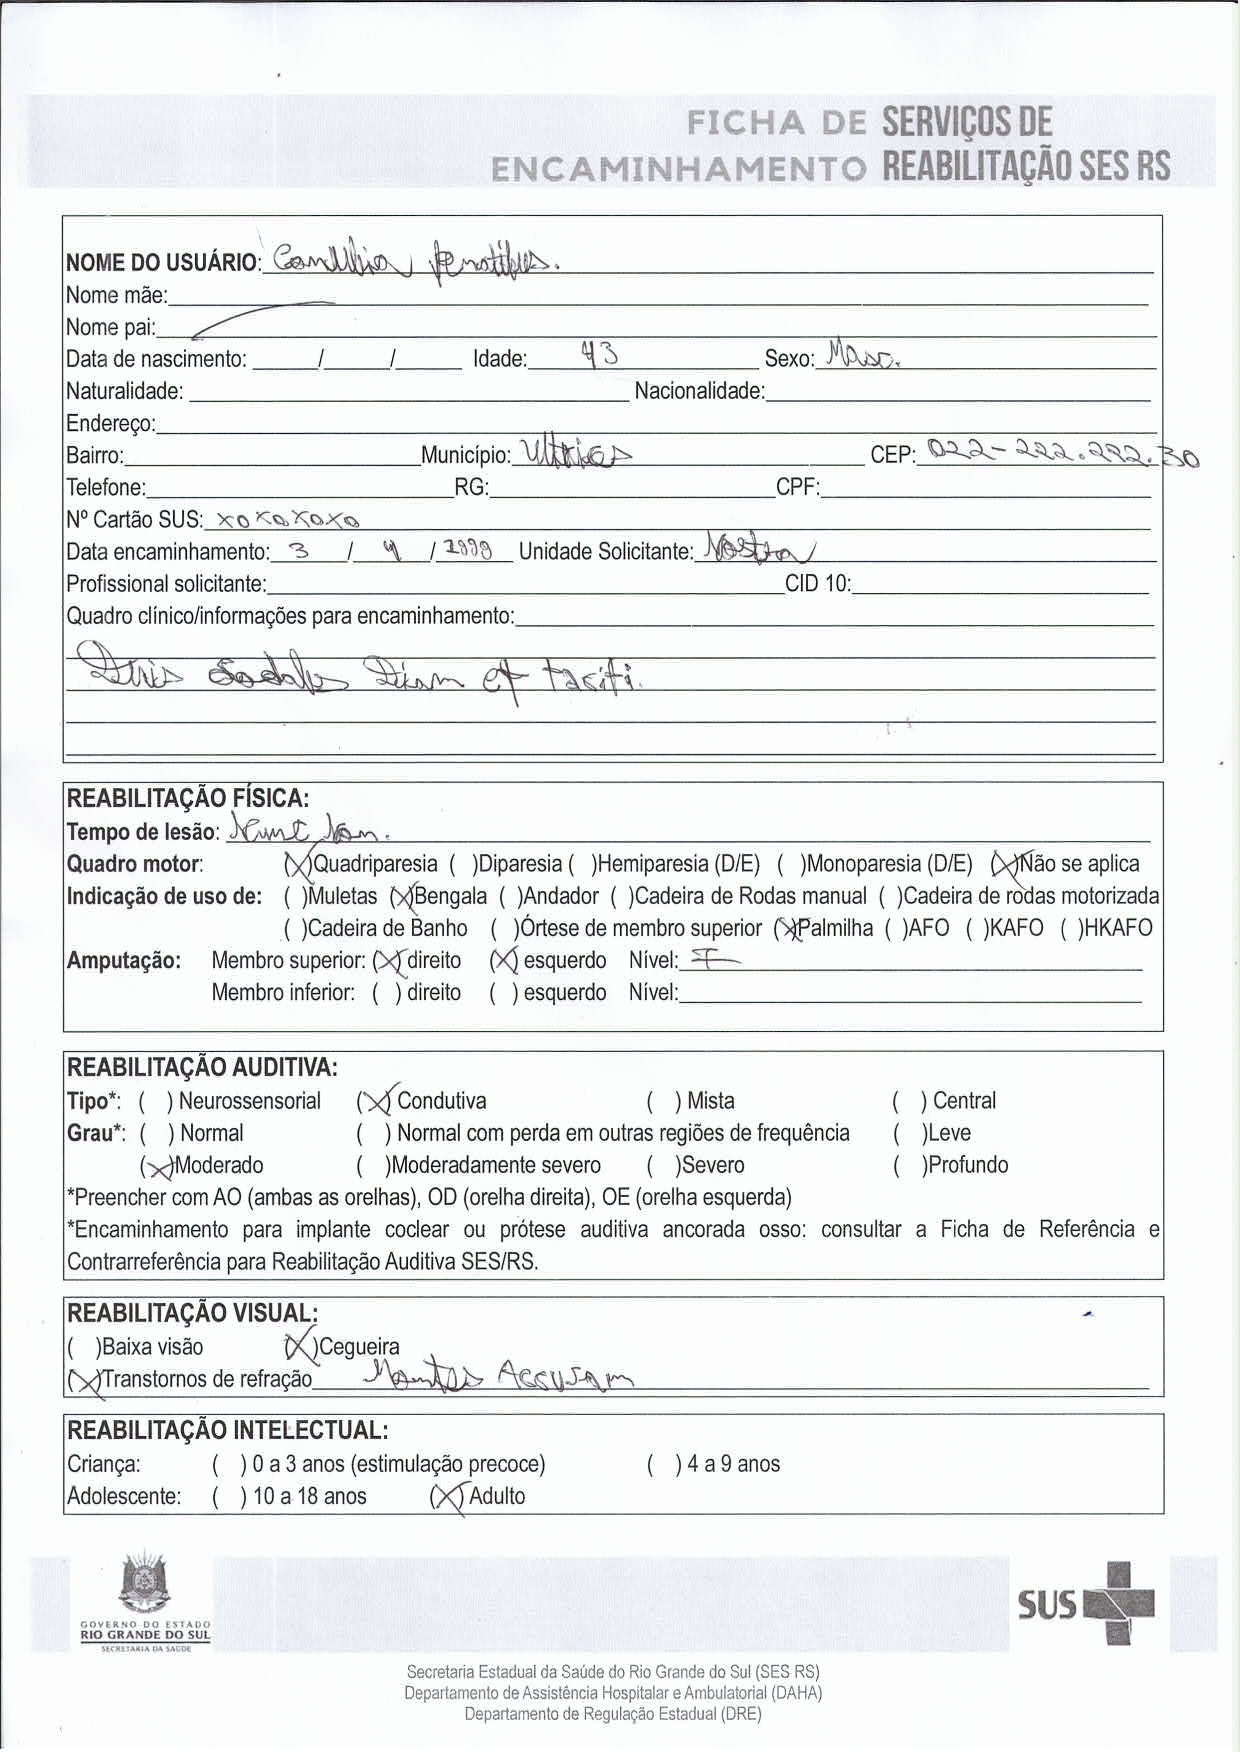 FICHA DE SERVIÇOS DE
ENCAMINHAMENTO REABILITAÇÃO SES RS
NOME DO USUÁRIO:
Nome mãe:
Nome pai:
Data de nascimento: / / Idade: 43 Sexo: Masc.
Naturalidade: Nacionalidade:
Endereço:
Bairro: Município: Ultrices CEP: 022-222.222.30
Telefone: RG: CPF:
Nº Cartão SUS: xoxoxoxo
Data encaminhamento: 3 / 4 / 1999 Unidade Solicitante: Nostra
Profissional solicitante: CID 10:
Quadro clínico/informações para encaminhamento:
Duis Sodales Diam et taciti.
REABILITAÇÃO FÍSICA:
Tempo de lesão: Nunc Non.
Quadro motor: (X)Quadriparesia ( )Diparesia ( )Hemiparesia (D/E) ( )Monoparesia (D/E) (X)Não se aplica
Indicação de uso de: ( )Muletas (X)Bengala ( )Andador ( )Cadeira de Rodas manual ( )Cadeira de rodas motorizada
( )Cadeira de Banho ( )Órtese de membro superior (X)Palmilha ( )AFO ( )KAFO ( )HKAFO
Amputação: Membro superior: (X) direito (X) esquerdo Nível: I
Membro inferior: ( ) direito ( ) esquerdo Nível:
REABILITAÇÃO AUDITIVA:
Tipo*: ( ) Neurossensorial (X) Condutiva ( ) Mista ( ) Central
Grau*: ( ) Normal ( ) Normal com perda em outras regiões de frequência ( )Leve
(X)Moderado ( )Moderadamente severo ( )Severo ( )Profundo
*Preencher com AO (ambas as orelhas), OD (orelha direita), OE (orelha esquerda)
*Encaminhamento para implante coclear ou prótese auditiva ancorada osso: consultar a Ficha de Referência e
Contrarreferência para Reabilitação Auditiva SES/RS.
REABILITAÇÃO VISUAL:
( )Baixa visão (X)Cegueira
(X)Transtornos de refração Montes Accusam
REABILITAÇÃO INTELECTUAL:
Criança: ( ) 0 a 3 anos (estimulação precoce) ( ) 4 a 9 anos
Adolescente: ( ) 10 a 18 anos (X) Adulto
GOVERNO DO ESTADO
RIO GRANDE DO SUL
SECRETARIA DA SAÚDE
SUS
Secretaria Estadual da Saúde do Rio Grande do Sul (SES RS)
Departamento de Assistência Hospitalar e Ambulatorial (DAHA)
Departamento de Regulação Estadual (DRE)